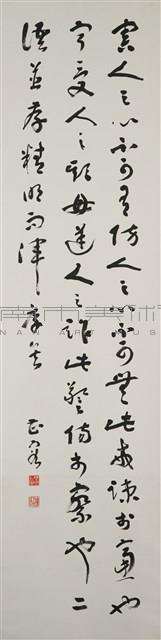 害人之心不可有防人之心不可無此戒疎於慮也
寧受人之欺毋逆人之詐此警傷於察也二
語並存精明而渾厚矣